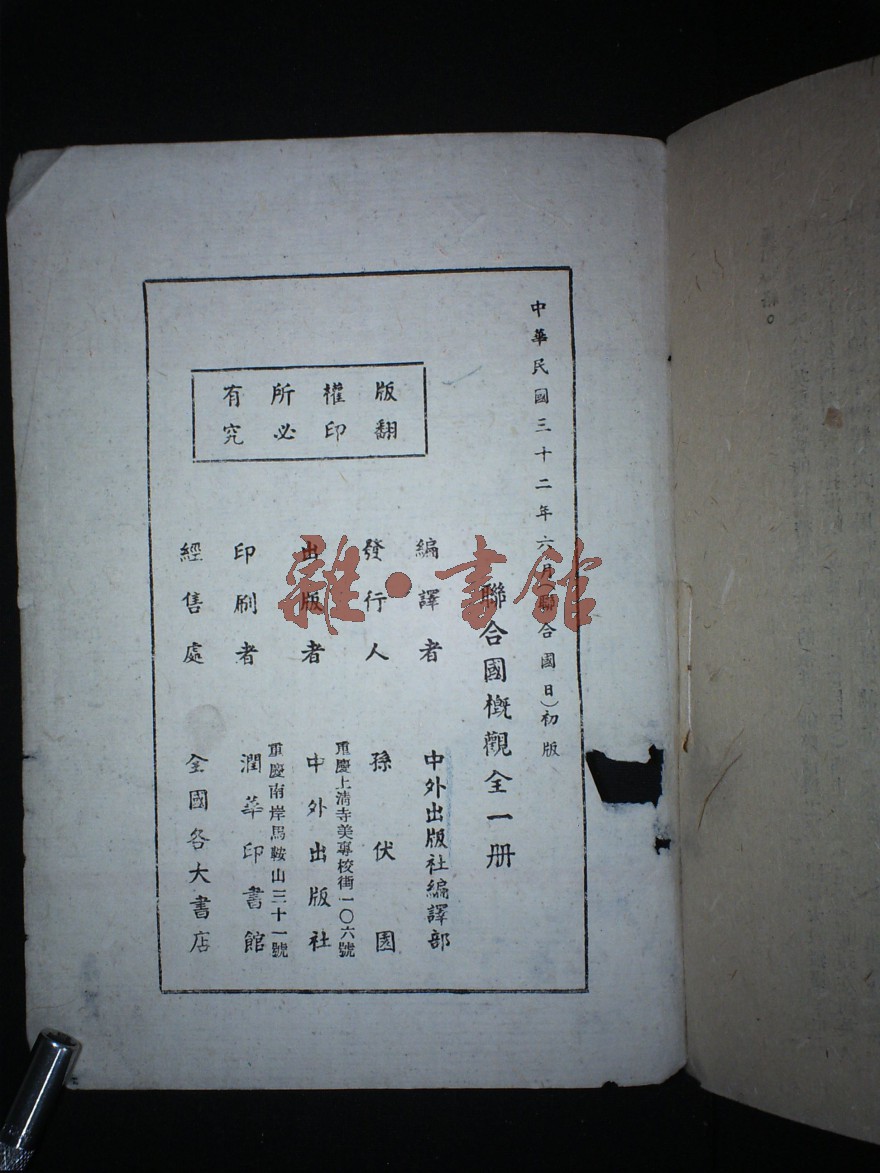 中華民國三十二年六月(聯合國日)初版
聯合國概觀全一册
編譯者 中外出版社編譯部
發行人 孫伏園
重慶上清寺美專校街一〇六號
出版者 中外出版社
重慶南岸馬鞍山三十一號
印刷者 潤華印書館
經售處 全國各大書店
版權所有
翻印必究
雜·書館